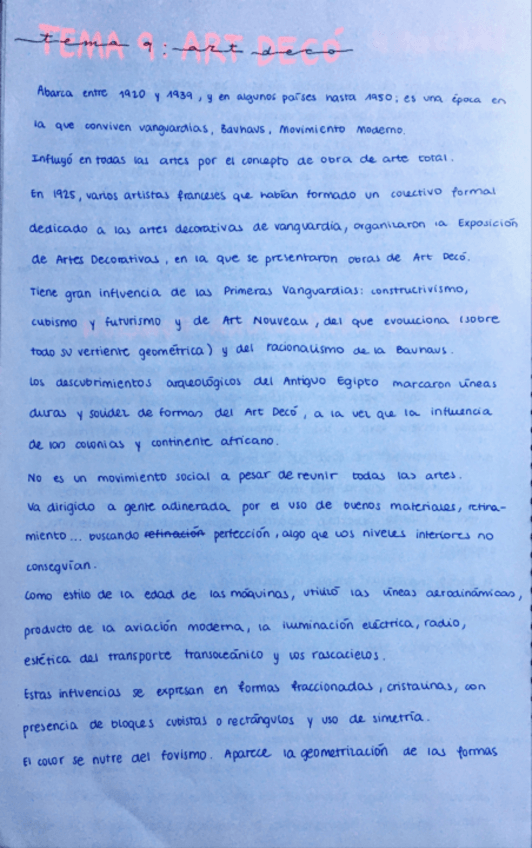 TEMA 9: ART DECÓ
tema 9: art deco
Abarca entre 1920 y 1939, y en algunos países hasta 1950; es una época en
la que conviven vanguardias, Bauhaus, Movimiento Moderno.
Influyó en todas las artes por el concepto de obra de arte total.
En 1925, varios artistas franceses que habían formado un colectivo formal
dedicado a las artes decorativas de vanguardia, organizaron la Exposición
de Artes Decorativas, en la que se presentaron obras de Art Decó.
Tiene gran influencia de las Primeras Vanguardias: constructivismo,
cubismo y futurismo y de Art Nouveau, del que evoluciona (sobre
todo su vertiente geométrica) y del racionalismo de la Bauhaus.
Los descubrimientos arqueológicos del Antiguo Egipto marcaron líneas
duras y solidez de formas del Art Decó, a la vez que la influencia
de las colonias y continente africano.
No es un movimiento social a pesar de reunir todas las artes.
Va dirigido a gente adinerada por el uso de buenos materiales, refina-
miento... buscando refinación perfección, algo que los niveles inferiores no
conseguían.
Como estilo de la edad de las máquinas, utilizó las líneas aerodinámicas,
producto de la aviación moderna, la iluminación eléctrica, radio,
estética del transporte transoceánico y los rascacielos.
Estas influencias se expresan en formas fraccionadas, cristalinas, con
presencia de bloques cubistas o rectángulos y uso de simetría.
El color se nutre del fovismo. Aparece la geometrización de las formas